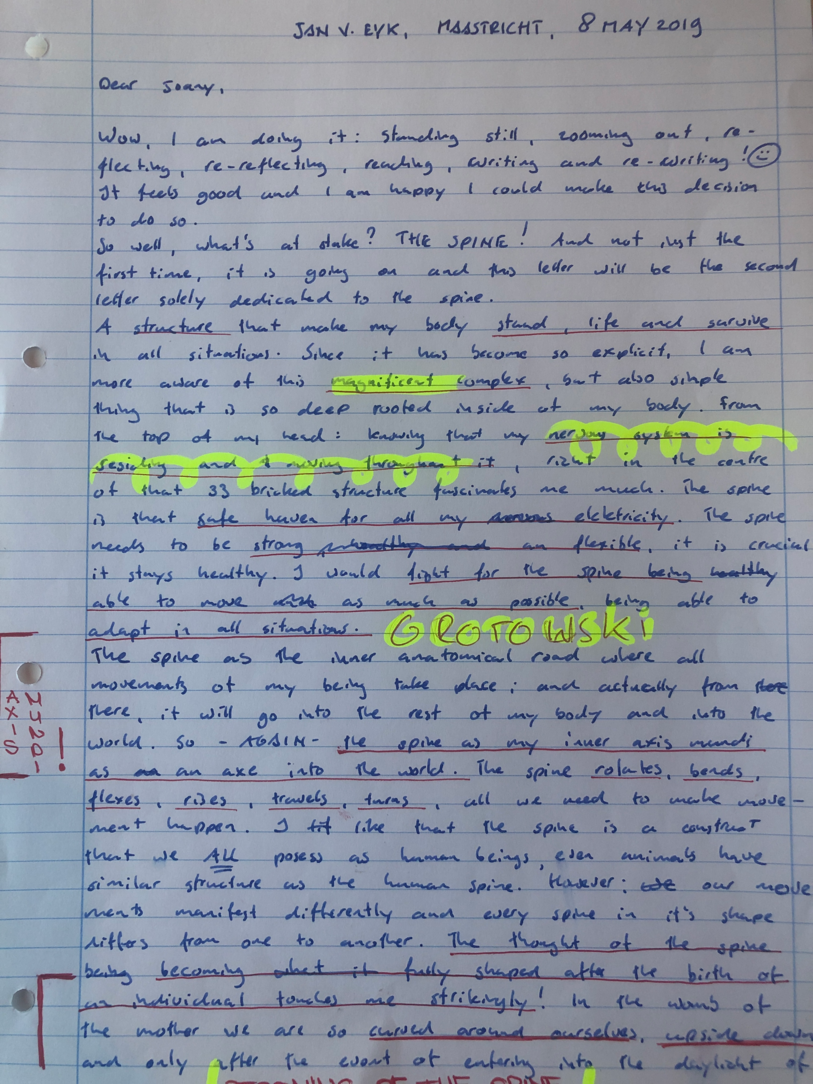 JAN V. EYK, MAASTRICHT, 8 MAY 2019
Dear Soany,
Wow, I am doing it: standing still, zooming out, re-
flecting, re-reflecting, reading, writing and re-writing!
It feels good and I am happy I could make this decision
to do so.
So well, what's at stake? THE SPINE! And not just the
first time, it is going on and this letter will be the second
letter solely dedicated to the spine.
A structure that make my body stand, life and survive
in all situations. Since it has become so explicit, I am
more aware of this magnificent complex, but also simple
thing that is so deep rooted inside of my body. From
the top of my head: knowing that my nervous system is
residing and moving throughout it, right in the centre
of that 33 bricked structure fascinates me much. The spine
is that safe haven for all my nervous elektricity. The spine
needs to be strong an flexible, it is crucial
it stays healthy. I would fight for the spine being healthy
able to move as much as possible, being able to
adapt in all situations. GROTOWSKI
The spine as the inner anatomical road where all
movements of my being take place; and actually from
there, it will go into the rest of my body and into the
world. So - AGAIN - the spine as my inner axis mundi
as an axe into the world. The spine rotates, bends,
flexes, rises, travels, turns, all we need to make move-
ment happen. I like that the spine is a construct
that we ALL posess as human beings, even animals have
similar structure as the human spine. However: our move
ments manifest differently and every spine in it's shape
differs from one to another. The thought of the spine
being becoming fully shaped after the birth of
an individual touches me strikingly! In the womb of
the mother we are so curved around ourselves, upside down
and only after the event of entering into the daylight of
OF THE SPINE
AXIS
MUNDI
!